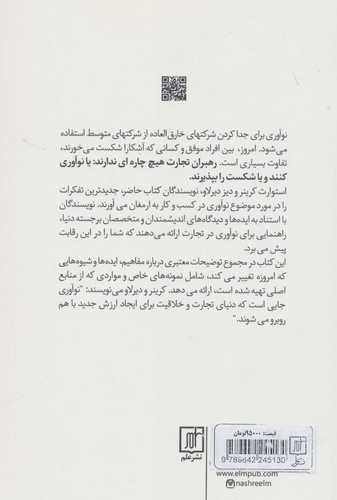 نوآوری برای جدا کردن شرکتهای خارق‌العاده از شرکتهای متوسط استفاده
می‌شود. امروز، بین افراد موفق و کسانی که آشکارا شکست می‌خورند،
تفاوت بسیاری است. رهبران تجارت هیچ چاره ای ندارند: یا نوآوری
کنند و یا شکست را بپذیرند.
استوارت کرینر و دیز دیرلاو، نویسندگان کتاب حاضر، جدیدترین تفکرات
را در مورد موضوع نوآوری در کسب و کار به ارمغان می آورند. نویسندگان
با استناد به ایده‌ها و دیدگاه‌های اندیشمندان و متخصصان برجسته دنیا،
راهنمایی برای نوآوری در تجارت ارائه می‌دهند که شما را در این رقابت
پیش می برد.
این کتاب در مجموع توضیحات معتبری درباره مفاهیم، ایده‌ها و شیوه‌هایی
که امروزه تغییر می کند، شامل نمونه‌های خاص و مواردی که از منابع
اصلی تهیه شده است، ارائه می دهد. کرینر و دیرلاو می‌نویسند: "نوآوری
جایی است که دنیای تجارت و خلاقیت برای ایجاد ارزش جدید با هم
روبرو می شوند."
قیمت: ۹۵۰۰۰تومان
9 789642 245130
نشر علم
www.elmpub.com
@nashreelm